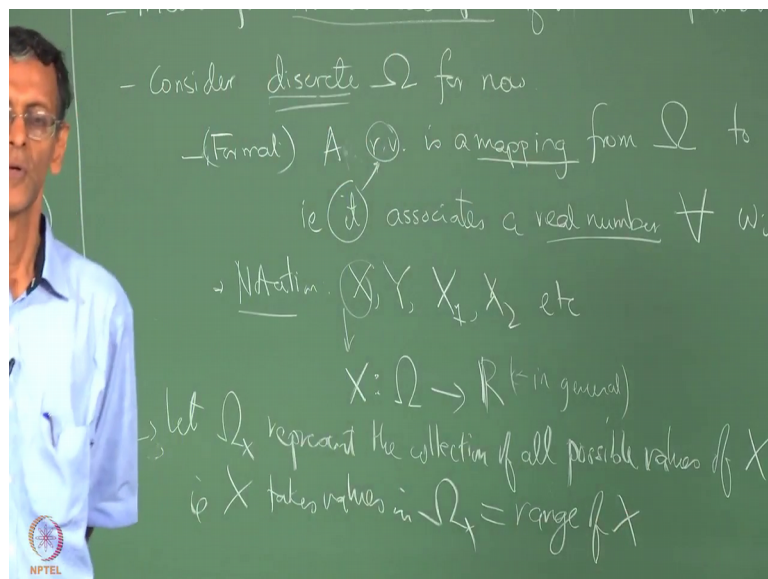 - Consider discrete Ω for now
- (Formal) A r.v. is a mapping from Ω to
ie it associates a real number ∀ wi
Notation. X, Y, X₁, X₂ etc
X: Ω → R (← in general)
→ Let Ωₓ represent the collection of all possible values of X
ie X takes values in Ωₓ = range of X
NPTEL